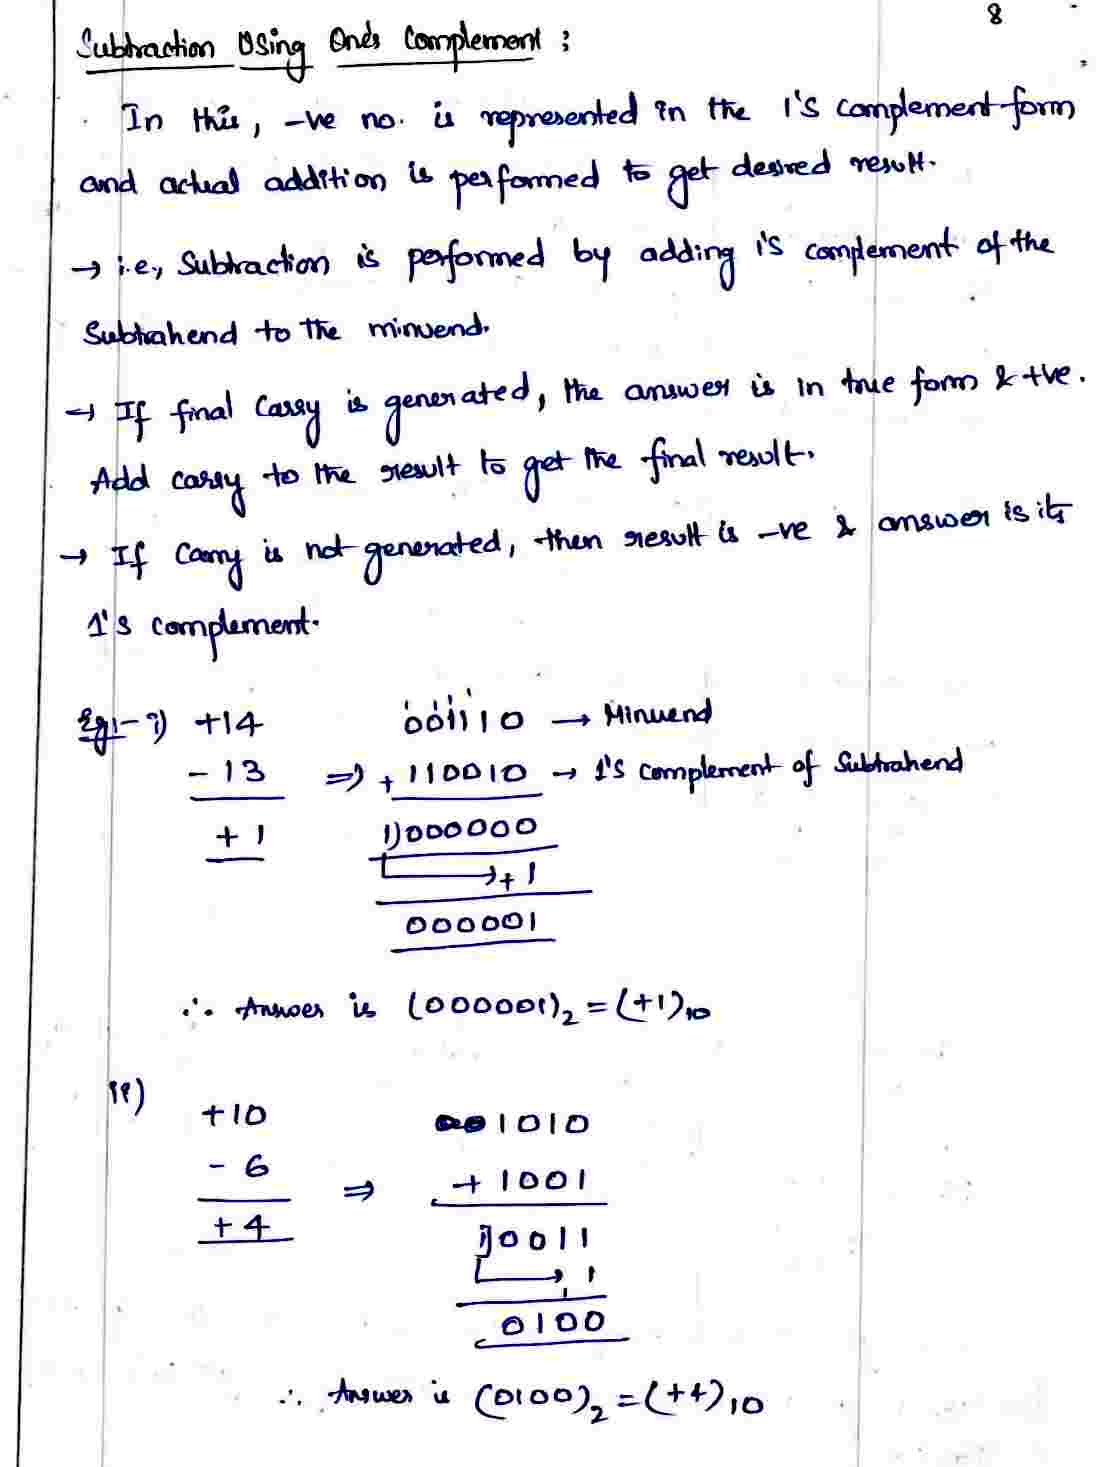 8
Subtraction Using One's Complement :
In this, -ve no. is represented in the 1's complement form
and actual addition is performed to get desired result.
→ i.e., Subtraction is performed by adding 1's complement of the
Subtrahend to the minuend.
→ If final carry is generated, the answer is in true form & +ve.
Add carry to the result to get the final result.
→ If carry is not generated, then result is -ve & answer is its
1's complement.
Eg:- i) +14 001110 → Minuend
- 13 ⇒ + 110010 → 1's complement of Subtrahend
+ 1 1)000000
→+ 1
000001
∴ Answer is (000001)₂ = (+1)₁₀
ii)
+10 1010
- 6 ⇒ + 1001
+ 4 1)0011
→ 1
+
0100
∴ Answer is (0100)₂ = (+4)₁₀